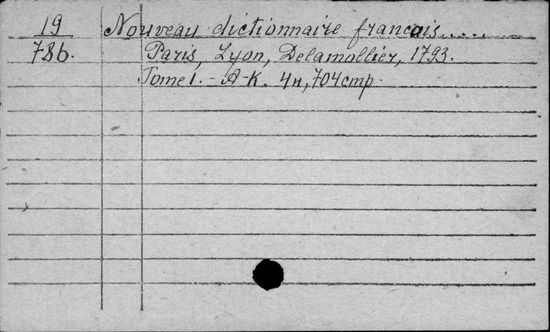 19 Nouveau dictionnaire français.....
786. Paris, Lyon, Delamollière, 1793.
Tome 1. - A-K. 4н, 704 стр.